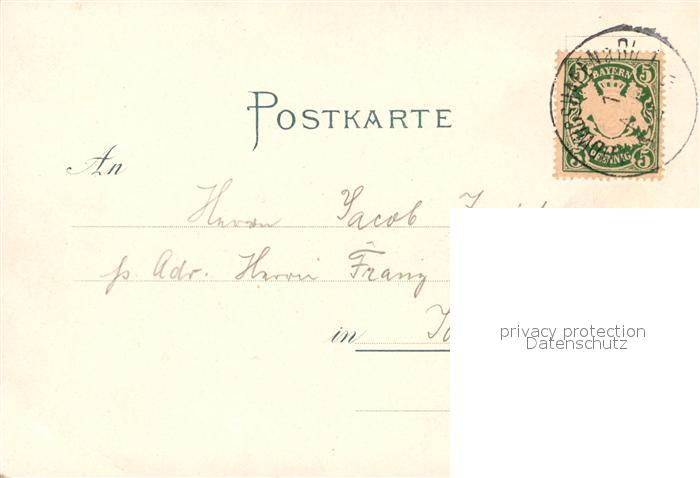 BAYERN
5 5
5 5
PFENNIG
POSTKARTE
An
Herrn Jacob
p. Adr. Herrn Franz
in
privacy protection
Datenschutz